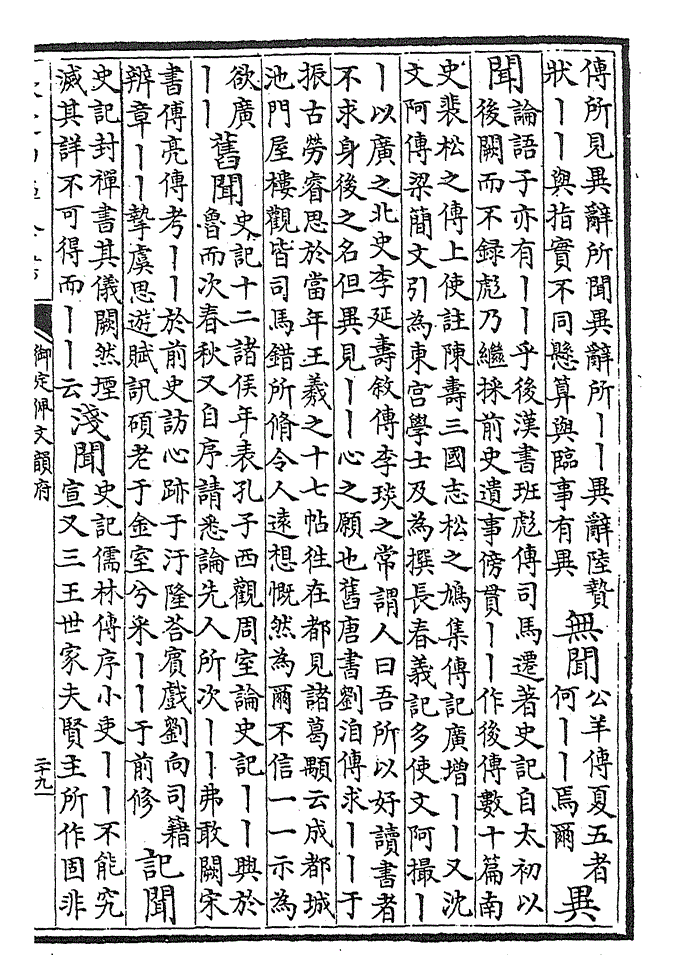 傳所見異辭所聞異辭所丨丨異辭陸贄
狀丨丨與指實不同懸算與臨事有異
無聞
公羊傳夏五者
何丨丨焉爾
異
聞
論語子亦有丨丨乎後漢書班彪傳司馬遷著史記自太初以
後闕而不録彪乃繼採前史遺事傍貫丨丨作後傳數十篇南
史裴松之傳上使註陳壽三國志松之鳩集傳記廣增丨丨又沈
文阿傳梁簡文引為東宫學士及為撰長春義記多使文阿撮丨
丨以廣之北史李延壽敘傳李琰之常謂人曰吾所以好讀書者
不求身後之名但異見丨丨心之願也舊唐書劉洎傳求丨丨于
振古勞睿思於當年王羲之十七帖徃在都見諸葛顒云成都城
池門屋樓觀皆司馬錯所脩令人遠想慨然為爾不信一一示為
欲廣
丨丨
舊聞
史記十二諸侯年表孔子西觀周室論史記丨丨興於
魯而次春秋又自序請悉論先人所次丨丨弗敢闕宋
書傅亮傳考丨丨於前史訪心跡于汙隆荅賓戲劉向司籍
辨章丨丨摯虞思遊賦訊碩老于金室兮釆丨丨于前修
記聞
史記封禪書其儀闕然堙
滅其詳不可得而丨丨云
淺聞
史記儒林傳序小吏丨丨不能究
宣又三王世家夫賢主所作固非
御定佩文韻府
二十九